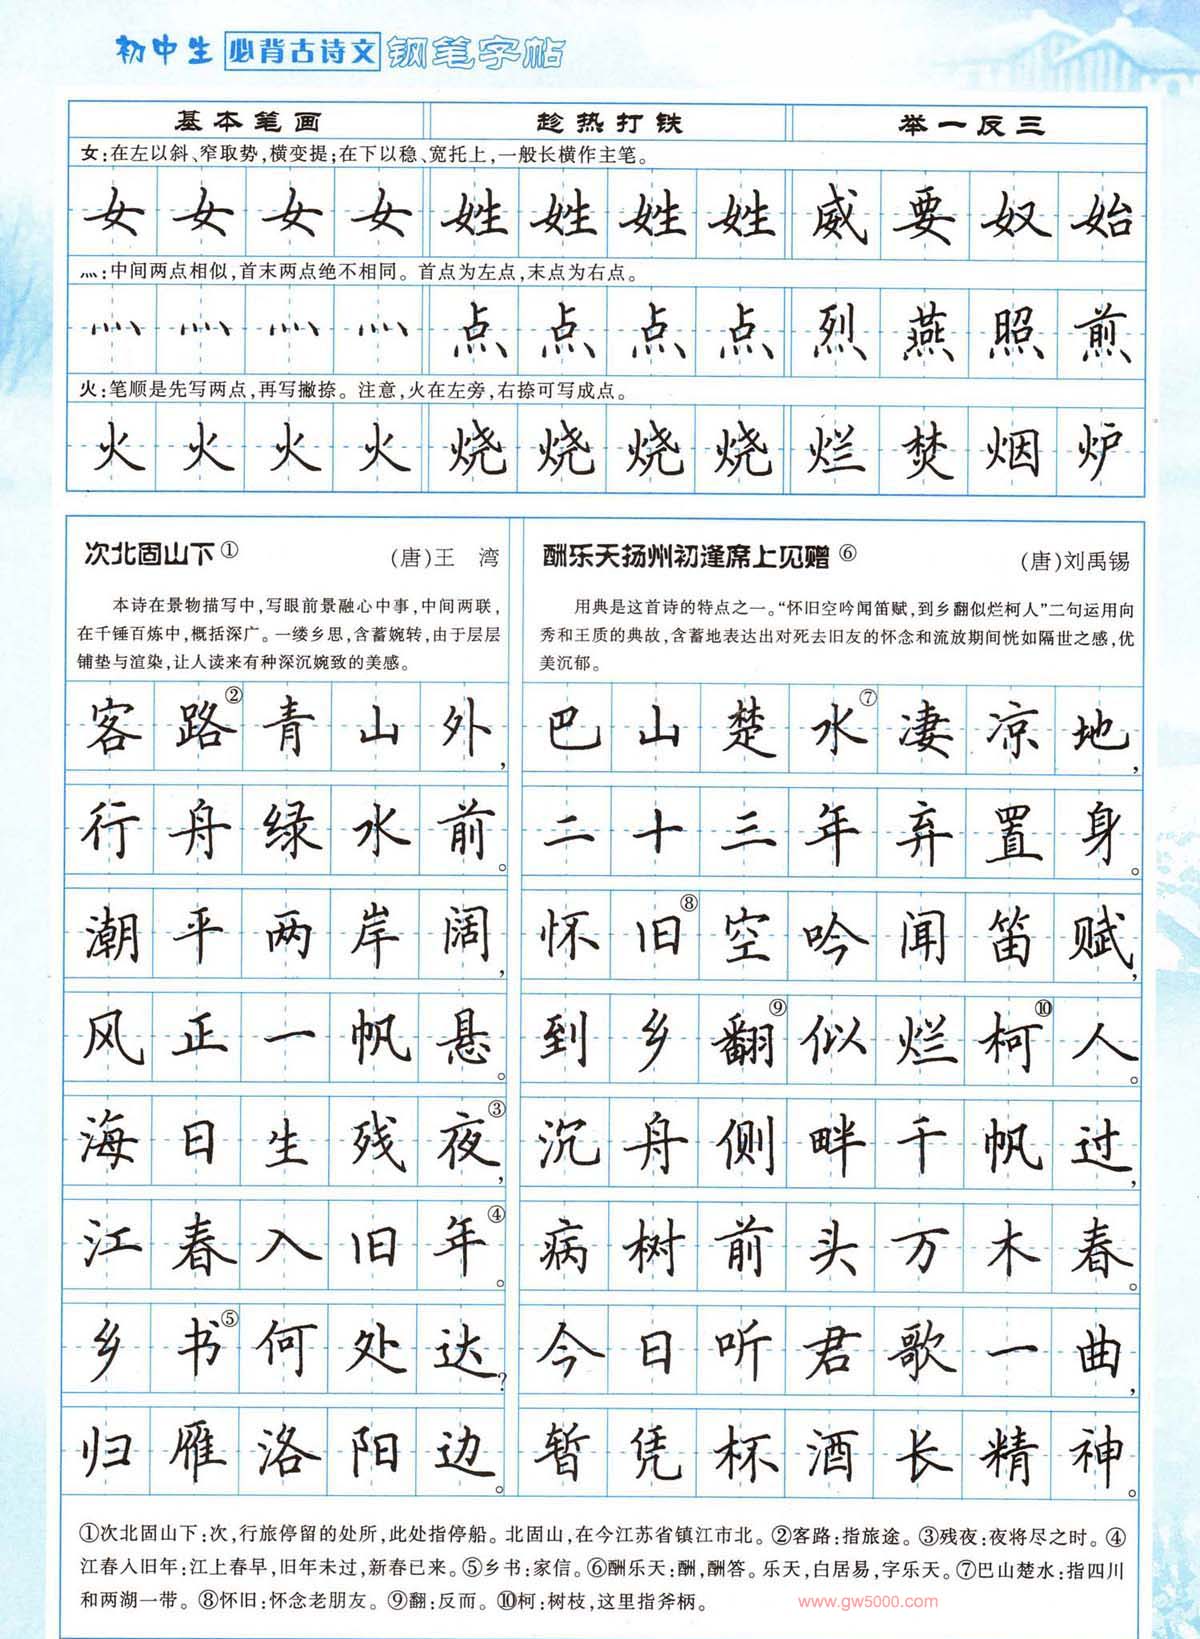 初中生 必背古诗文 钢笔字帖
基本笔画 趁热打铁 举一反三
女:在左以斜、窄取势,横变提;在下以稳、宽托上,一般长横作主笔。
女 女 女 女 姓 姓 姓 姓 威 要 奴 始
灬:中间两点相似,首末两点绝不相同。首点为左点,末点为右点。
灬 灬 灬 灬 点 点 点 点 烈 燕 照 煎
火:笔顺是先写两点,再写撇捺。注意,火在左旁,右捺可写成点。
火 火 火 火 烧 烧 烧 烧 烂 焚 烟 炉
次北固山下①
(唐)王 湾
本诗在景物描写中,写眼前景融心中事,中间两联,
在千锤百炼中,概括深广。一缕乡思,含蓄婉转,由于层层
铺垫与渲染,让人读来有种深沉婉致的美感。
客路②青山外,
行舟绿水前。
潮平两岸阔,
风正一帆悬。
海日生残夜③,
江春入旧年④。
乡书⑤何处达?
归雁洛阳边。
酬乐天扬州初逢席上见赠⑥
(唐)刘禹锡
用典是这首诗的特点之一。“怀旧空吟闻笛赋,到乡翻似烂柯人”二句运用向
秀和王质的典故,含蓄地表达出对死去旧友的怀念和流放期间恍如隔世之感,优
美沉郁。
巴山楚水⑦凄凉地,
二十三年弃置身。
怀旧⑧空吟闻笛赋,
到乡翻⑨似烂柯⑩人。
沉舟侧畔千帆过,
病树前头万木春。
今日听君歌一曲,
暂凭杯酒长精神。
①次北固山下:次,行旅停留的处所,此处指停船。北固山,在今江苏省镇江市北。②客路:指旅途。③残夜:夜将尽之时。④
江春入旧年:江上春早,旧年未过,新春已来。⑤乡书:家信。⑥酬乐天:酬,酬答。乐天,白居易,字乐天。⑦巴山楚水:指四川
和两湖一带。⑧怀旧:怀念老朋友。⑨翻:反而。⑩柯:树枝,这里指斧柄。
www.gw5000.com